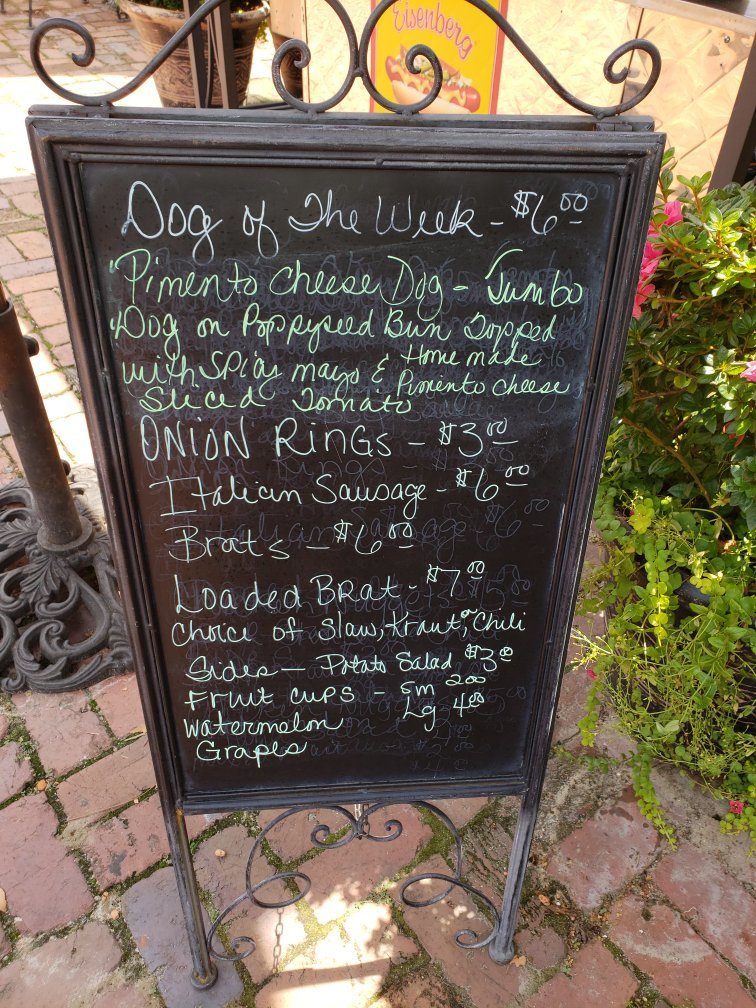 Eisenberg
Dog of The Week - $6.00
Pimento Cheese Dog - Jumbo
Dog on Poppyseed Bun Topped
with Spicy mayo & Home made Pimento Cheese
Sliced Tomato
ONION RINGS - $3.00
Italian Sausage - $6.00
Brats - $6.00
Loaded BRat - $7.00
Choice of Slaw, Kraut, or Chili
Sides - Potato Salad $3.00
FRUIT CUPS - Sm 2.00
Watermelon Lg 4.00
Grapes